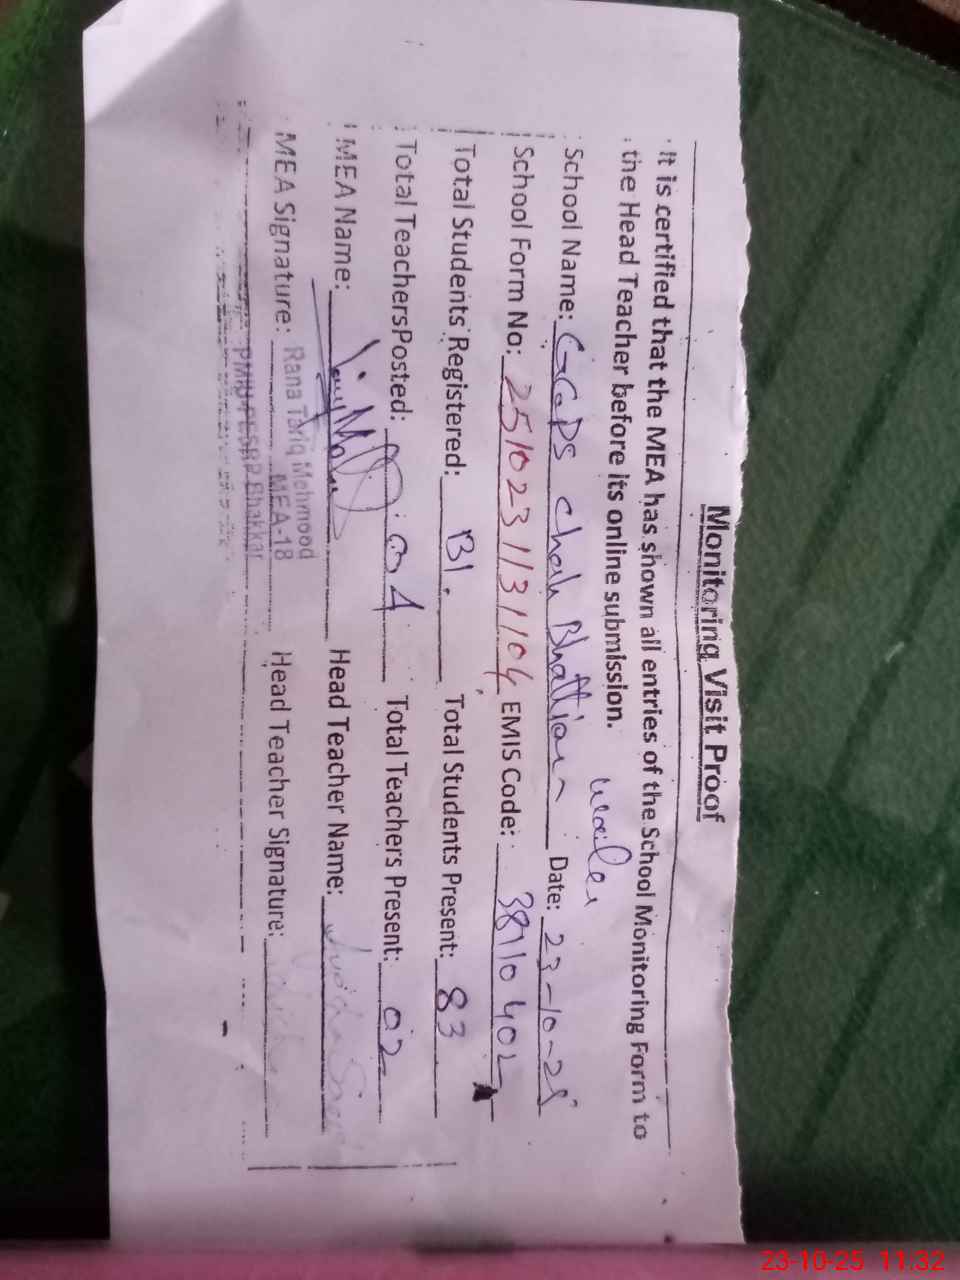 Monitoring Visit Proof
It is certified that the MEA has shown all entries of the School Monitoring Form to
the Head Teacher before its online submission.
School Name: GGPS chak Bhattian Date: 23-10-25
School Form No: 2510231131104 EMIS Code: 38110402
Total Students Registered: 131. Total Students Present: 83
Total TeachersPosted: 04 Total Teachers Present: 02
MEA Name: Head Teacher Name:
MEA Signature: Head Teacher Signature:
Rana Tariq Mehmood
MEA-18
PMIU-PESRP Bhakkar
23-10-25 11:32